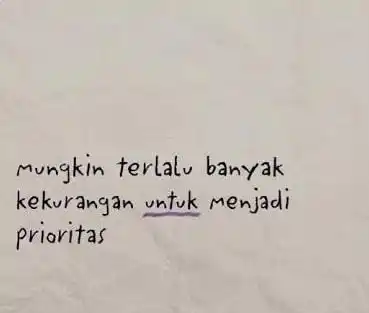 Mungkin terlalu banyak
kekurangan untuk menjadi
prioritas